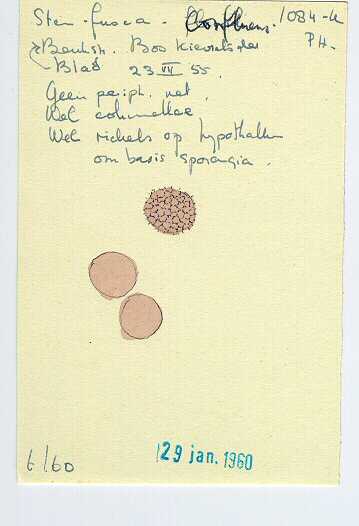 Stem. fusca. Confluens. 1084-u
PH.
Bentsh. Bos
Blad 23 VII 55.
Geen periph. net.
Wel columellae
Wel richels op hypothallus
om basis sporangia.
6/60
29 jan. 1960